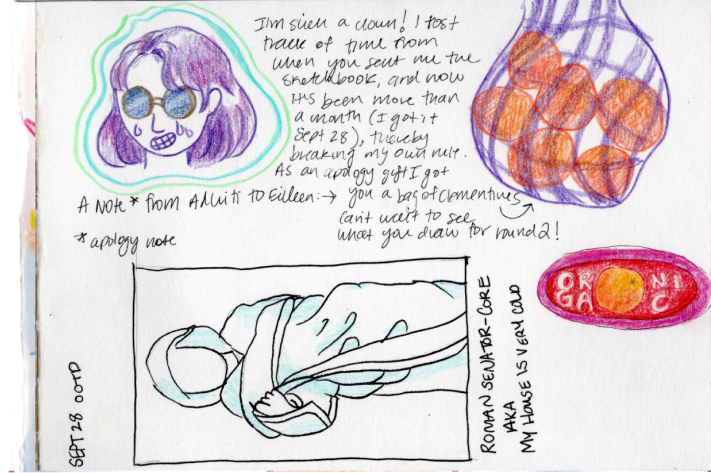 I'm such a clown! I lost
track of time from
when you sent me the
sketchbook, and now
it's been more than
a month (I got it
Sept 28), thereby
breaking my own rule.
As an apology gift I got
you a bag of clementines
Can't wait to see
what you draw for round 2!
A NOTE* from Aditi to Eileen:→
*apology note
ORGANIC
SEPT 28 OOTD
ROMAN SENATOR-CORE
AKA
MY HOUSE IS VERY COLD